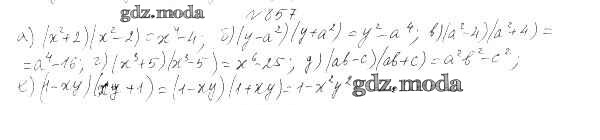 gdz.moda №857
а) (x²+2)(x²-2)=x⁴-4; б) (y-a²)(y+a²)=y²-a⁴; в) (a²-4)(a²+4)=
=a⁴-16; г) (x³+5)(x³-5)=x⁶-25; д) (ab-c)(ab+c)=a²b²-c²;
е) (1-xy)(xy+1)=(1-xy)(1+xy)=1-x²y² gdz.moda